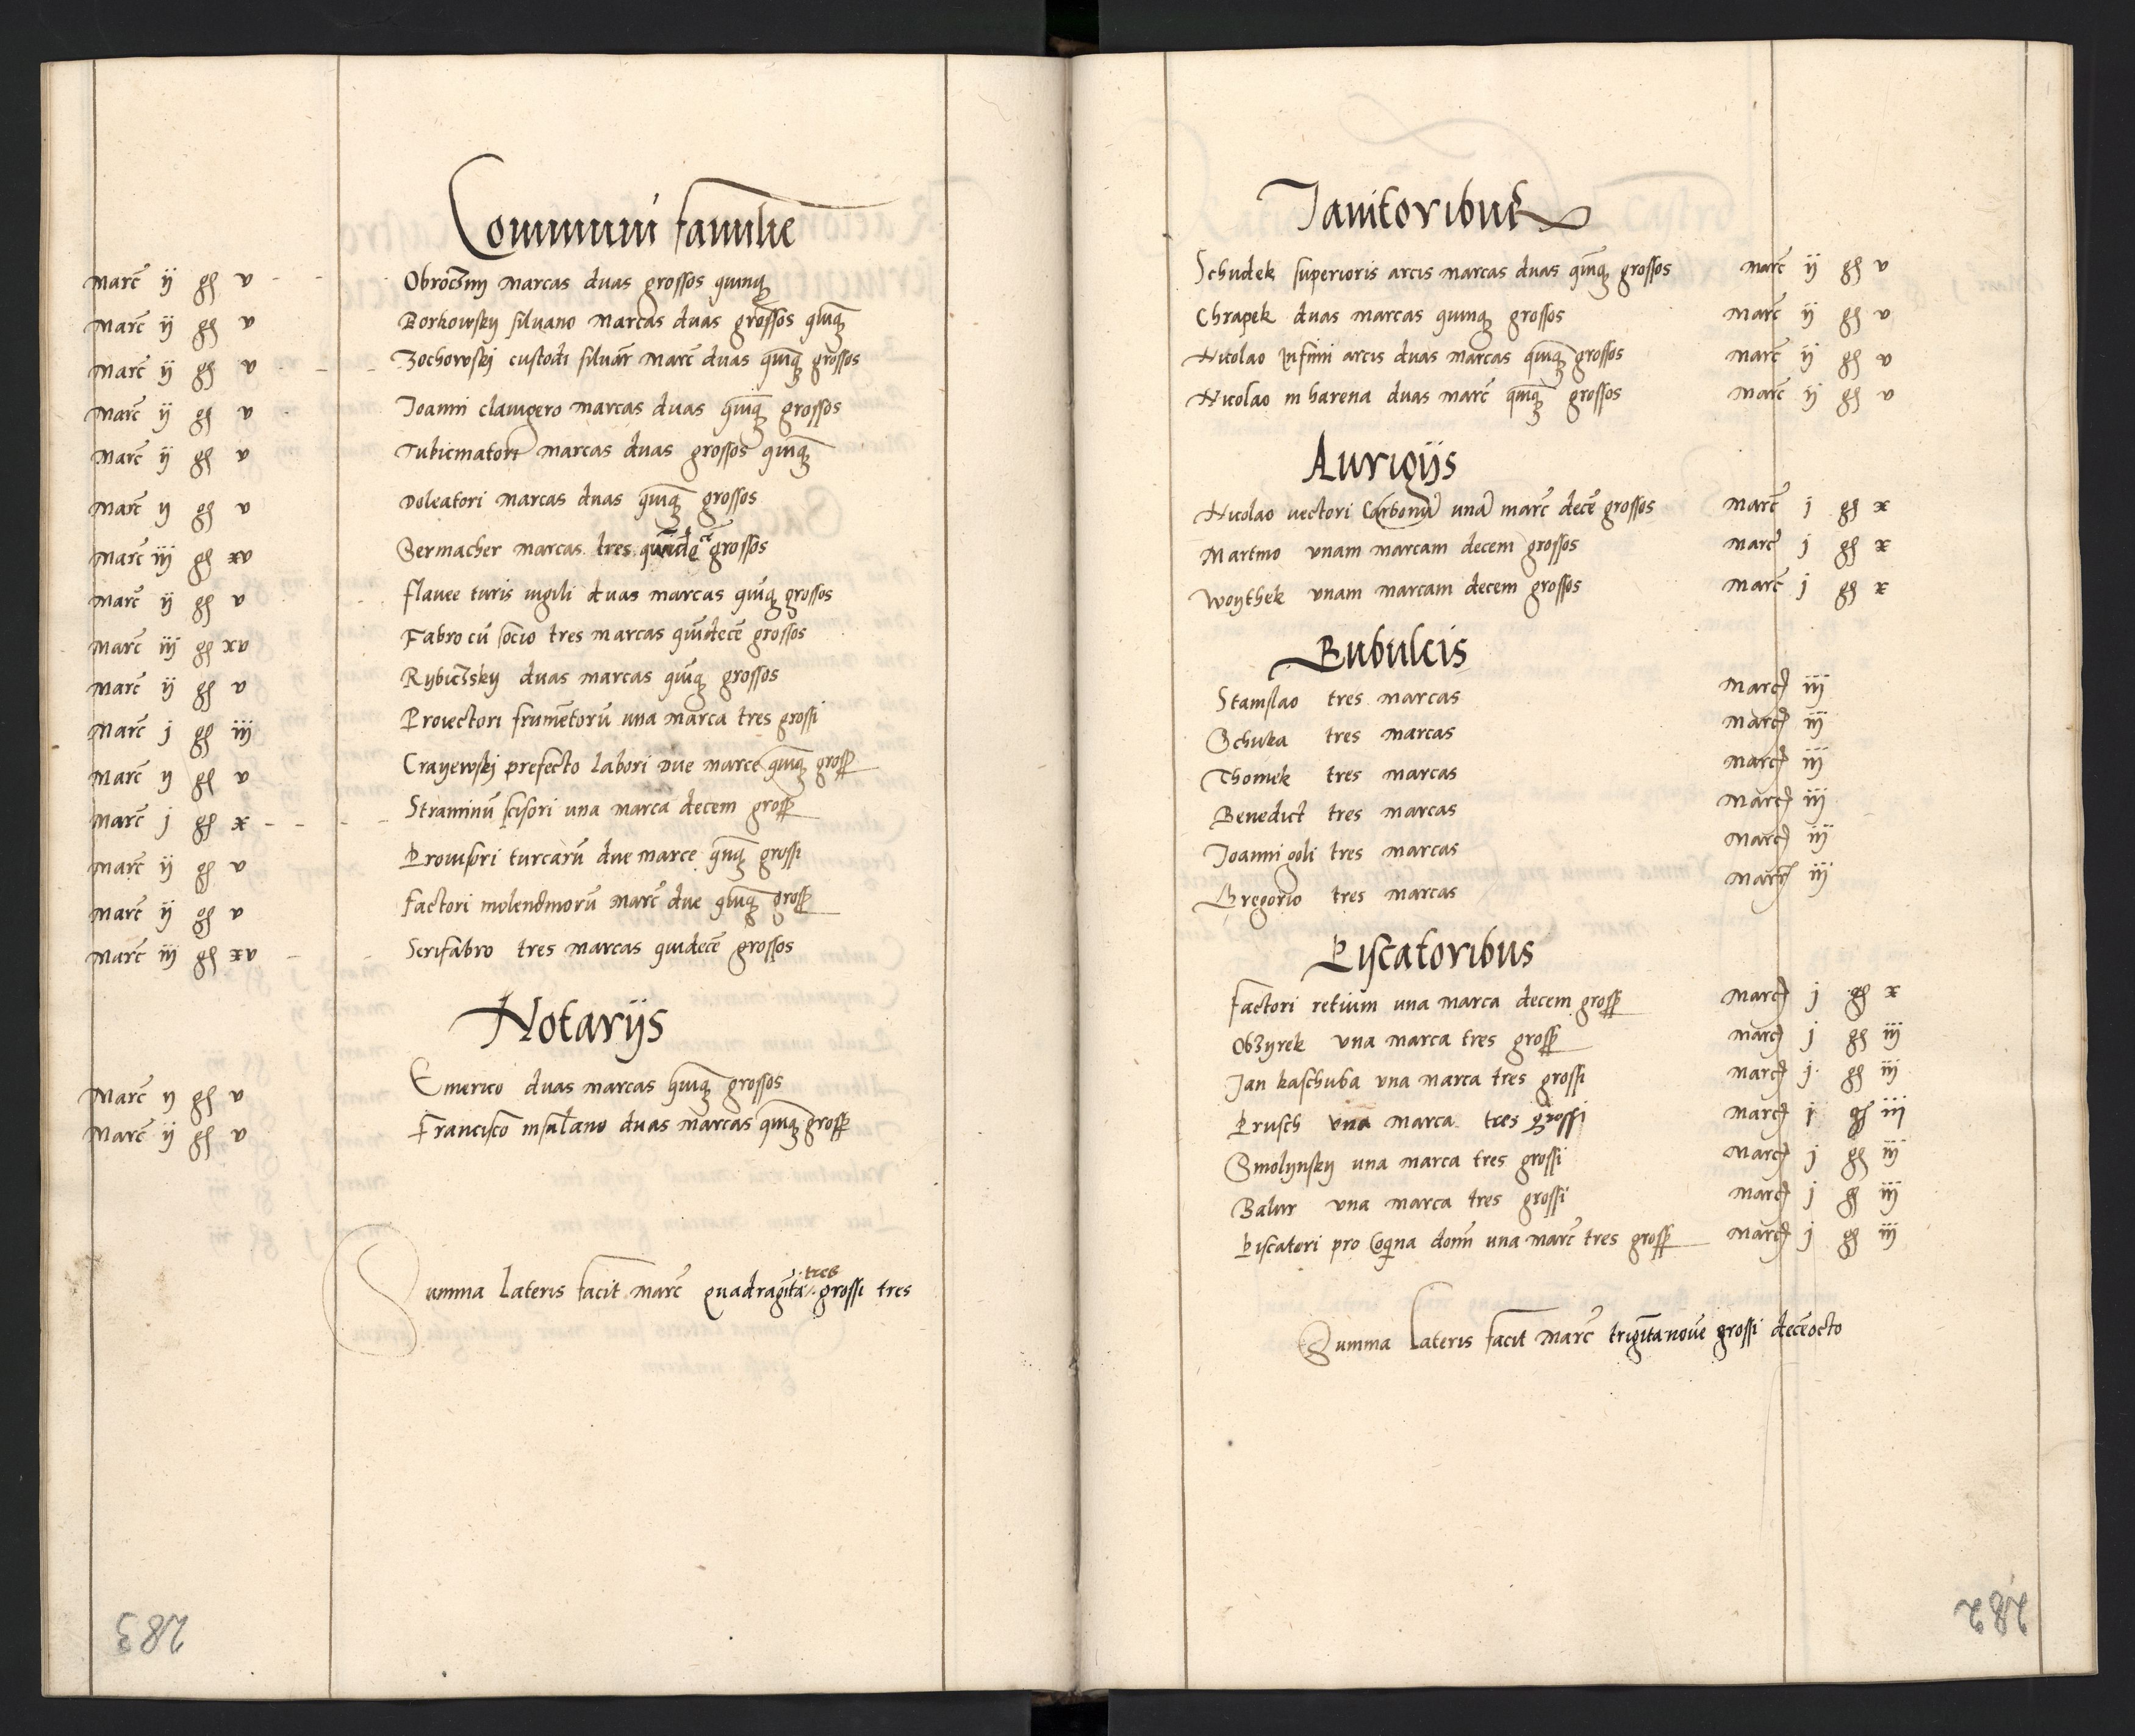 Communi familie
Marc̃ ij gß v Obroczny marcas duas grossos quinq
Marc̃ ij gß v Borkowsky siluano marcas duas grossos quīq
Marc̃ ij gß v Zochowskj custodi siluar̃ marc̃ duas quīq grossos
Marc̃ ij gß v Joanni clauigero marcas duas quīq grossos
Marc̃ ij gß v Tubicinatori marcas duas grossos quīq
Marc̃ ij gß v Doleatori marcas duas quīq grossos
Marc̃ iij gß xv Sermacher marcas tres grossos
Marc̃ ij gß v flauee turis vigili duas marcas quīq grossos
Marc̃ iij gß xv Fabro cū socio tres marcas quīdecē grossos
Marc̃ ij gß v Rybiczsky duas marcas quīq grossos
Marc̃ j gß iij Prouectori frumētorū una marca tres grossi
Marc̃ ij gß v Crayewskj prefecto labori due marce quīq gross
Marc̃ j gß x Straminū scisori una marca decem gross
Marc̃ ij gß v Prouisori turcarū due marce quīq grossi
Marc̃ ij gß v factori molendinorū marc̃ due quīq gross
Marc̃ iij gß xv Serifabro tres marcas quīdecē grossos
Notarijs
Marc̃ ij gß v Emerico duas marcas quīq grossos
Marc̃ ij gß v Francisco insulano duas marcas quīq gross
Summa Lateris facit marc̃ quadragīta tres grossi tres
283
Janitoribus
Schudek superioris arcis marcas duas quīq grossos Marc̃ ij gß v
Chrapek duas marcas quinq grossos Marc̃ ij gß v
Nicolao infimi arcis duas marcas quīq grossos Marc̃ ij gß v
Nicolao in harena duas marc̃ quīq grossos Marc̃ ij gß v
Aurigijs
Nicolao vectori Carbonū unā marc̃ decē grossos Marc̃ j gß x
Martino vnam marcam decem grossos Marc̃ j gß x
Woythek vnam marcam decem grossos Marc̃ j gß x
Bubulcis
Stanislao tres marcas Marc iij
Schuba tres marcas Marc iij
Thomek tres marcas Marc iij
Benedict tres marcas Marc iij
Joanni goli tres marcas Marc iij
Gregorio tres marcas Marc iij
Piscatoribus
factori retium una marca decem gross Marc j gß x
Obzyrek vna marca tres gross Marc j gß iij
Jan kaschuba vna marca tres grossi Marc j gß iij
Prusch vna marca tres grossi Marc j gß iij
Smolynsky una marca tres grossi Marc j gß iij
Balur vna marca tres grossi Marc j gß iij
Piscatori pro Coq̃na domī una marc̃ tres gross Marc j gß iij
Summa Lateris facit marc̃ trigīta nouē grossi decēocto
282